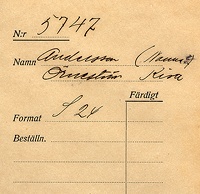 N:r 5747
Namn Andersson (Hanna
Örnestün Kiva
Färdigt
Format S 24
Beställn.